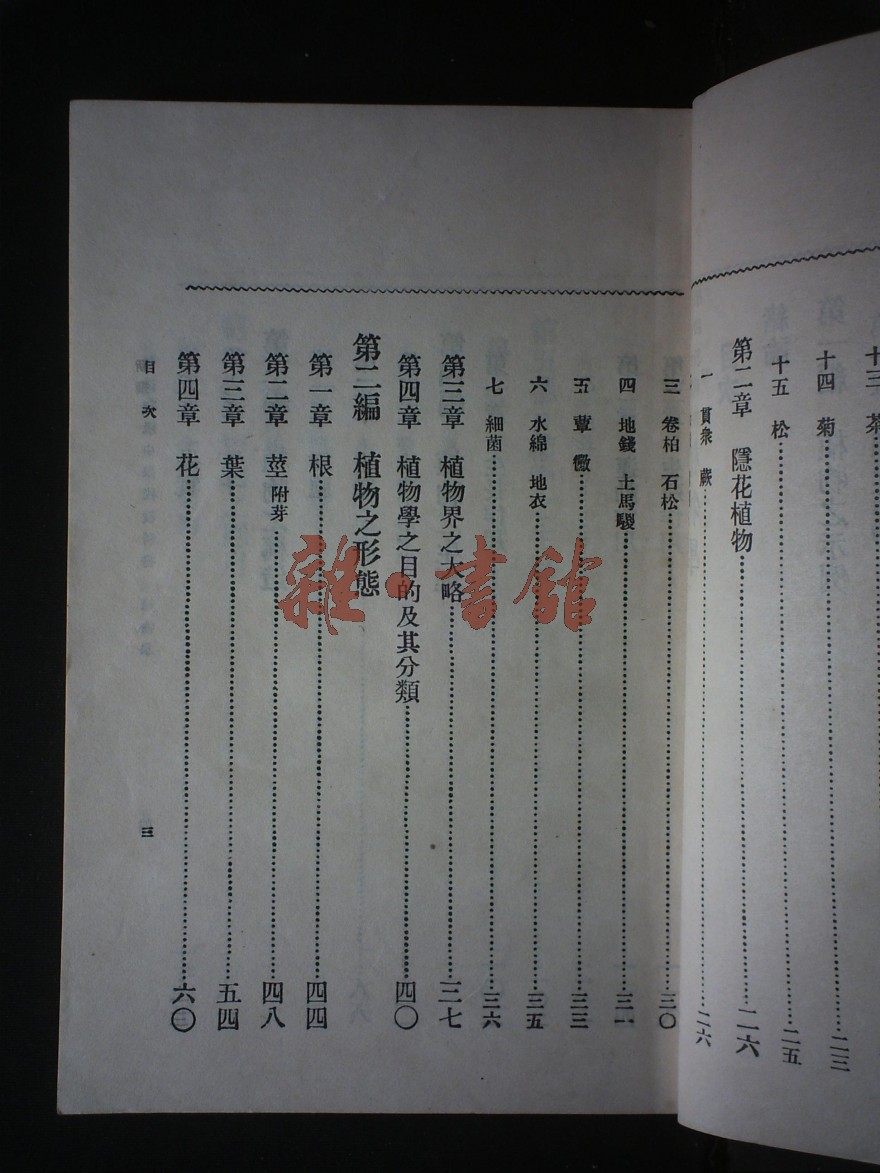 十三　茶
十四　菊……二三
十五　松……二五
第二章　隱花植物……二六
一　貫衆　蕨……二六
三　卷柏　石松……三〇
四　地錢　土馬騣……三一
五　蕈　黴……三三
六　水綿　地衣……三五
七　細菌……三六
第三章　植物界之大略……三七
第四章　植物學之目的及其分類……四〇
第二編　植物之形態
第一章　根……四四
第二章　莖附芽……四八
第三章　葉……五四
第四章　花……六〇
目次
三
雜·書館